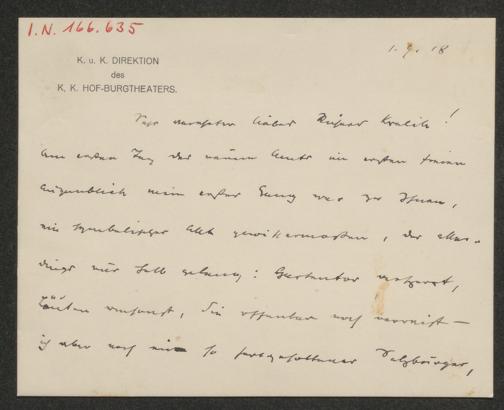 I.N. 166.635
K. u. K. DIREKTION
des
K. K. HOF-BURGTHEATERS.
1. 9. 18
Sehr verehrter lieber Richard Kralik!
Am ersten Tag des neuen Amts im ersten freien
Augenblick mein erster Gang war zu Ihnen,
ein symbolischer Akt gewissermaßen, der aller-
dings nur halb gelang: Gartentor versperrt,
Läuten umsonst, Sie offenbar noch verreist —
ich aber noch ein so Salzburger,